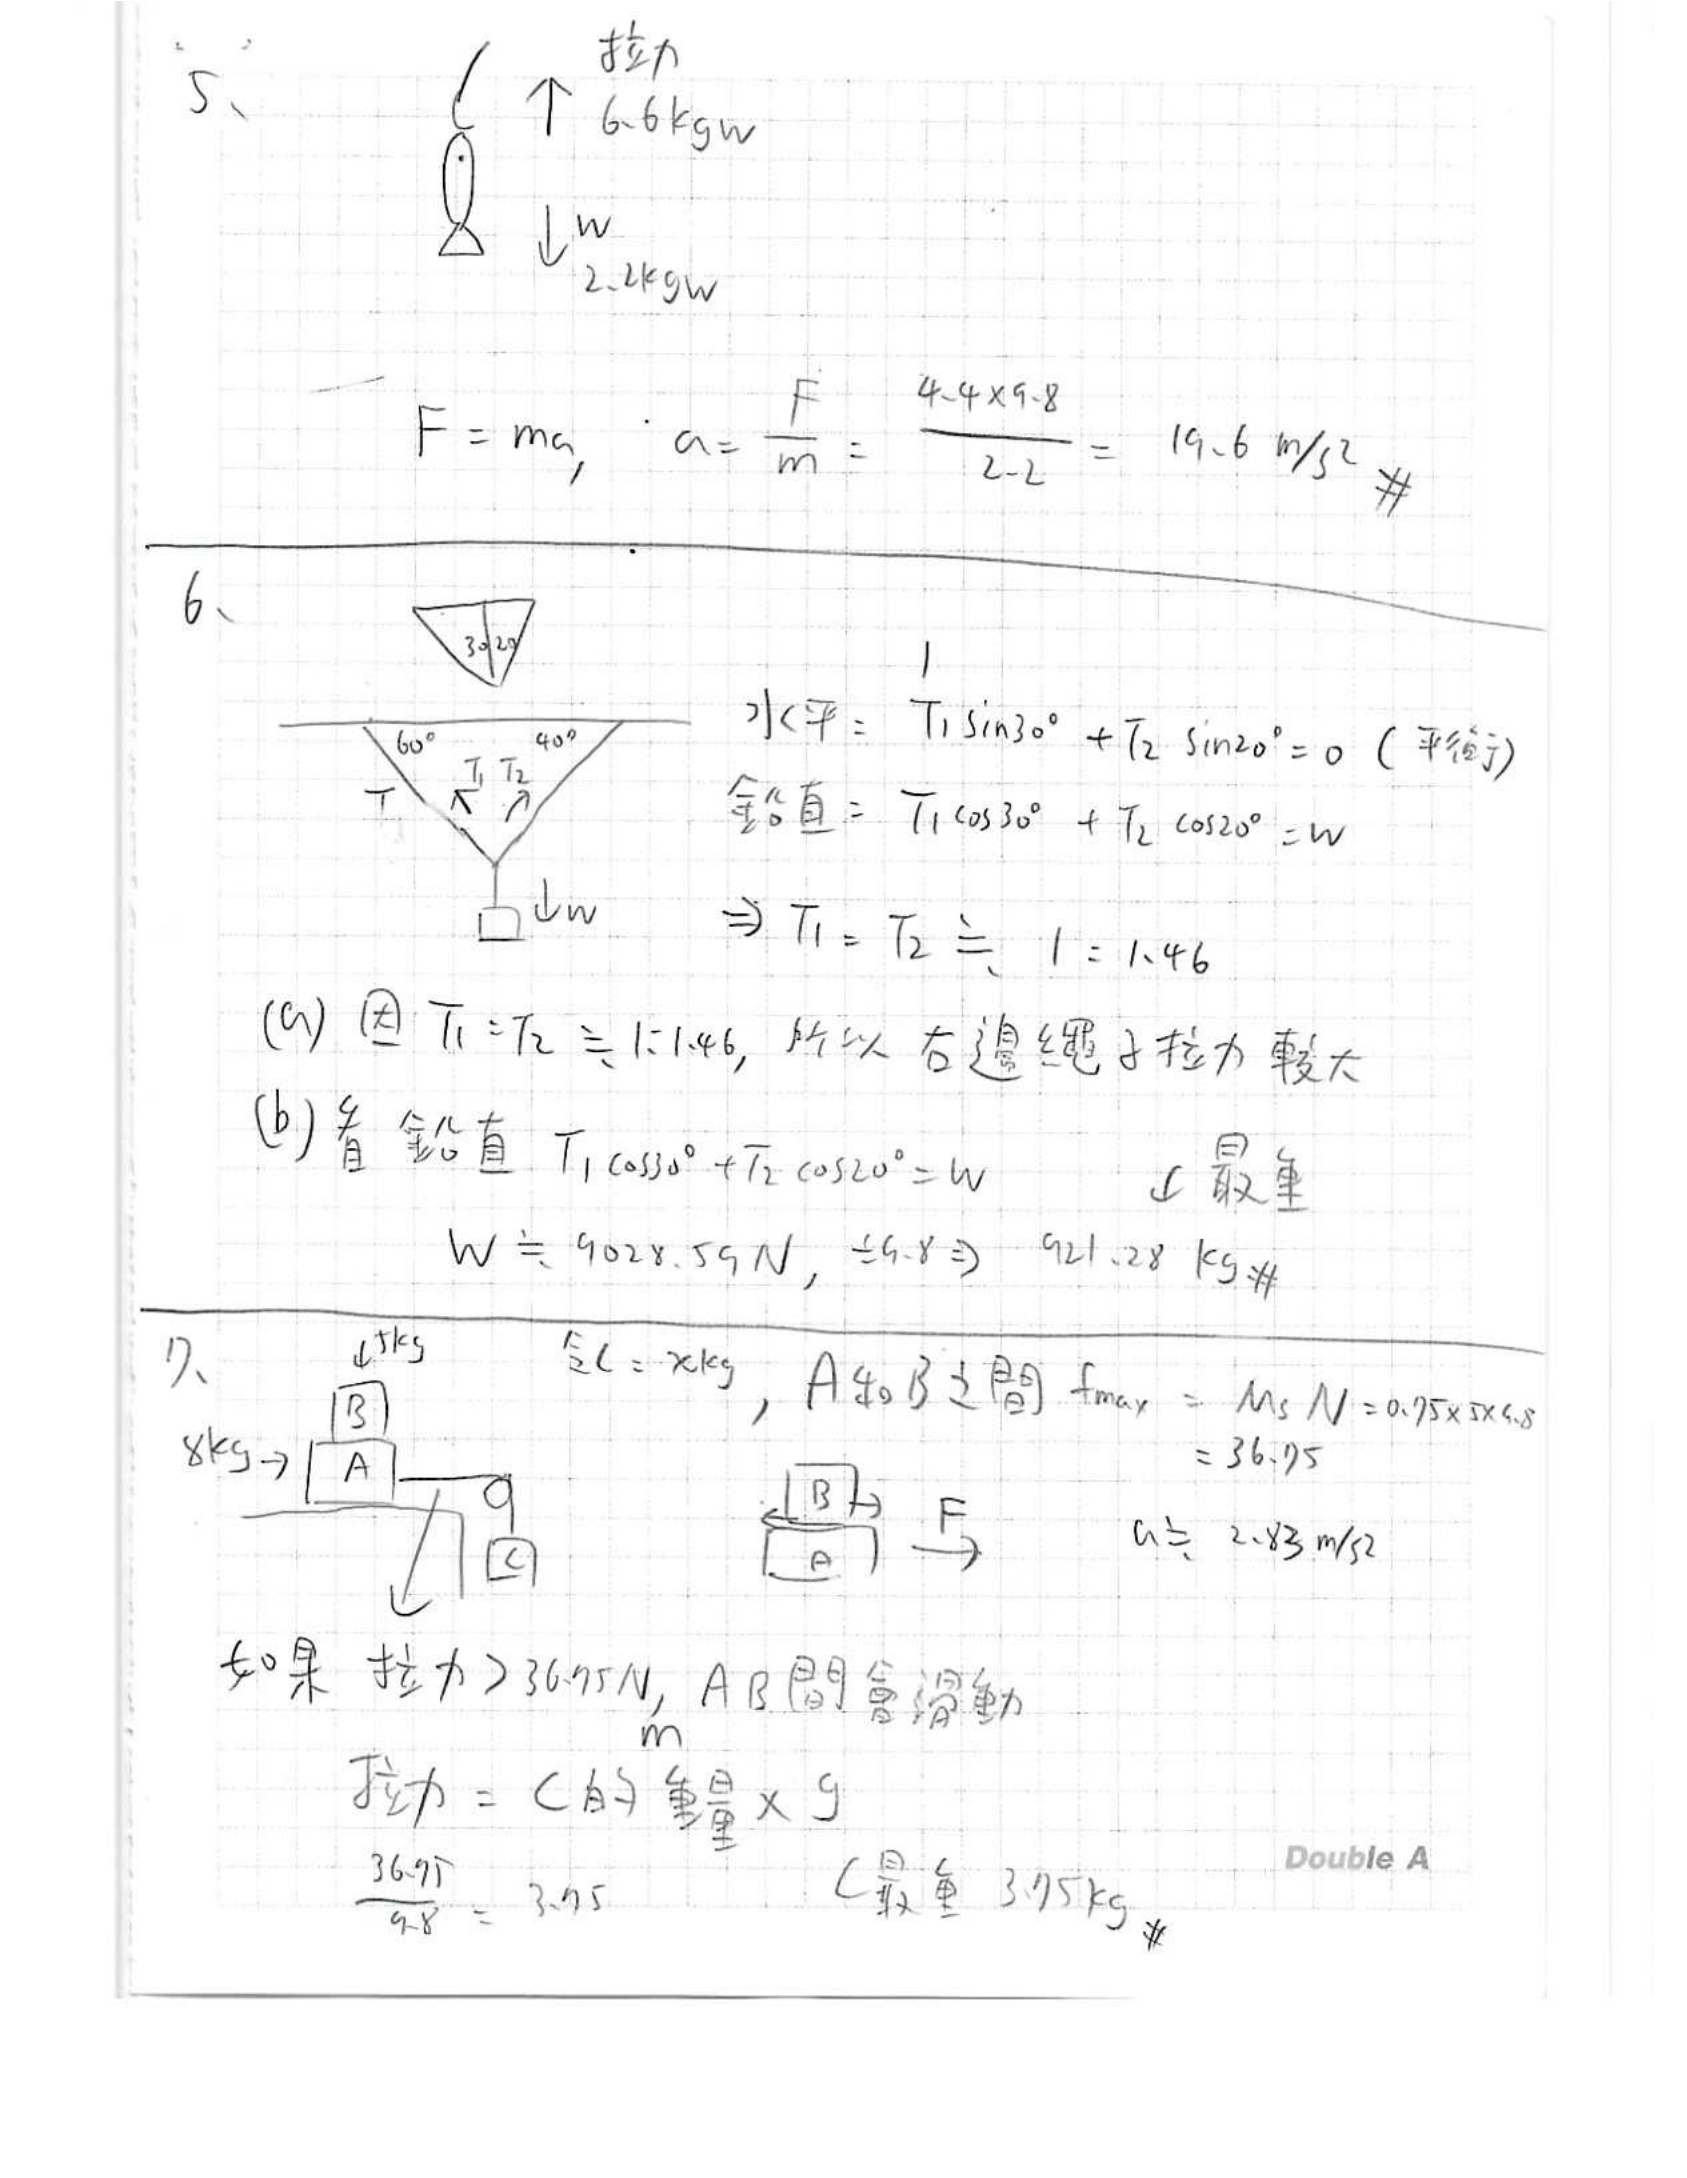 5、
拉力
6.6kgw
W
2.2kgw
F = ma, a = F/m = 4.4×9.8/2.2 = 19.6 m/s² #
6、
30 20
60° 40°
T T₁ T₂
↓W
水平: T₁ sin30° + T₂ sin20° = 0 (平衡)
鉛直: T₁ cos30° + T₂ cos20° = W
⇒ T₁ : T₂ ≒ 1 : 1.46
(a) 因 T₁:T₂ ≒ 1:1.46, 所以 右邊繩子拉力 較大
(b) 看 鉛直 T₁ cos30° + T₂ cos20° = W ↓最重
W ≒ 9028.59N, ÷9.8 ⇒ 921.28 kg #
7、
↓5kg
令C = xkg, A和B之間 fmax = Ms N = 0.75×5×9.8
= 36.75
8kg→
B
A
C
B
A
F
a ≒ 2.83 m/s²
如果 拉力 > 36.75N, AB間會滑動
m
拉力 = C的 重量 × g
36.75/9.8 = 3.75 C最重 3.75kg #
Double A